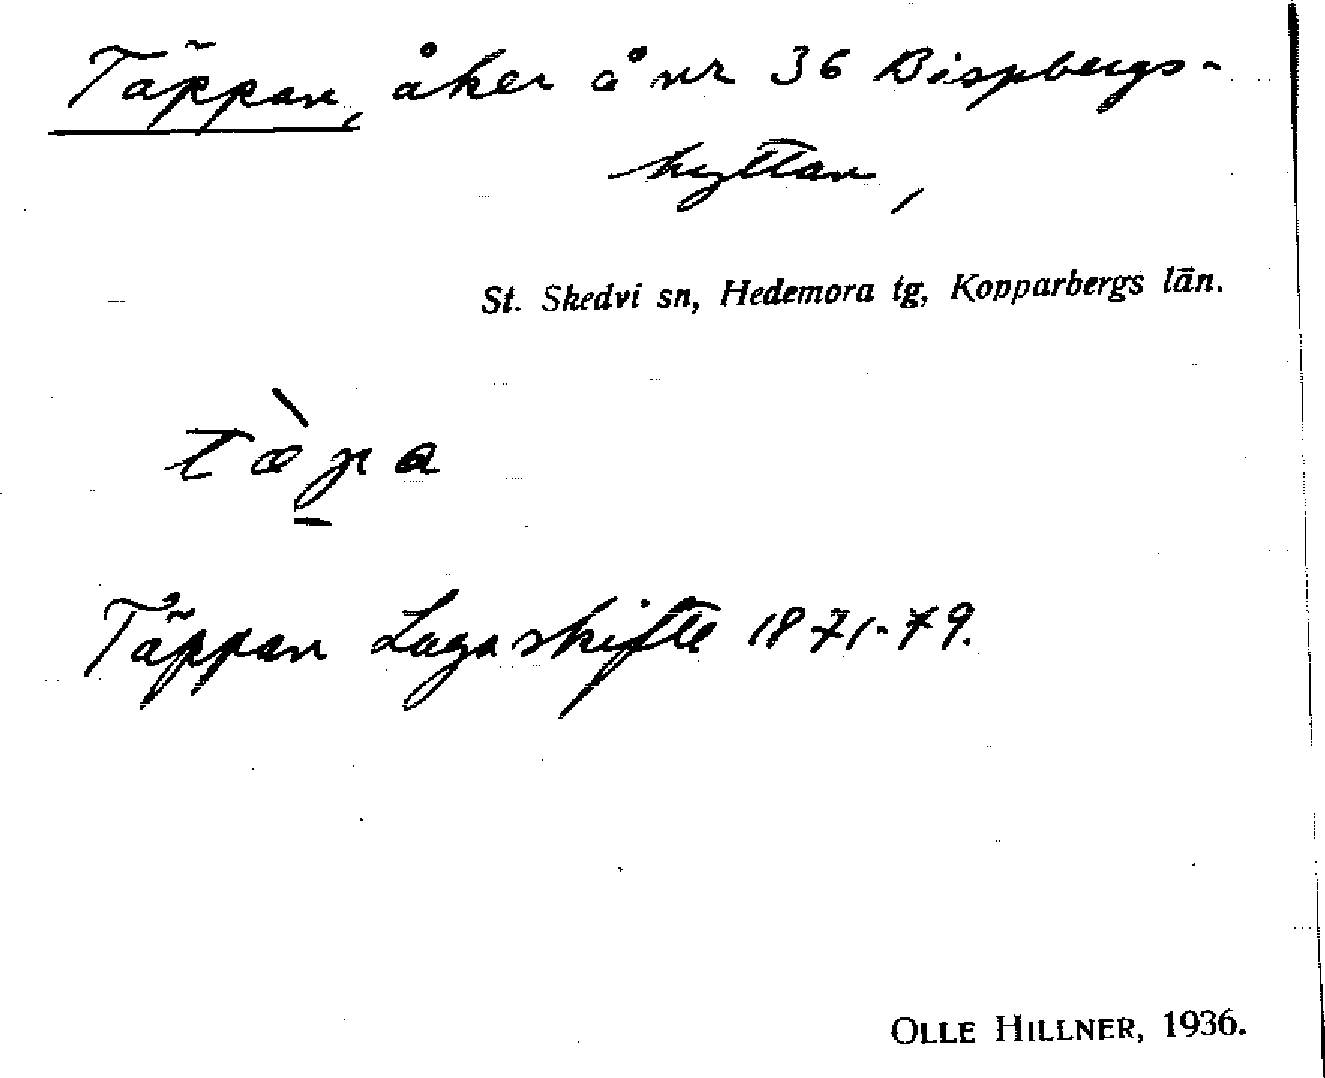 Täppan, åker å nr 36 Bispbergs-
hyttan,
St. Skedvi sn, Hedemora tg, Kopparbergs län.
tæ̀p̱a
Täppan Laga skifte 1871-79.
OLLE HILLNER, 1936.